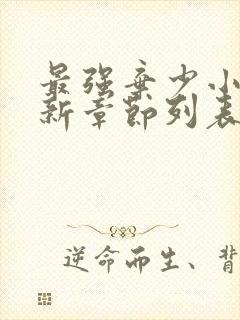 最强弃少小
新章节列表
逆命而生、背